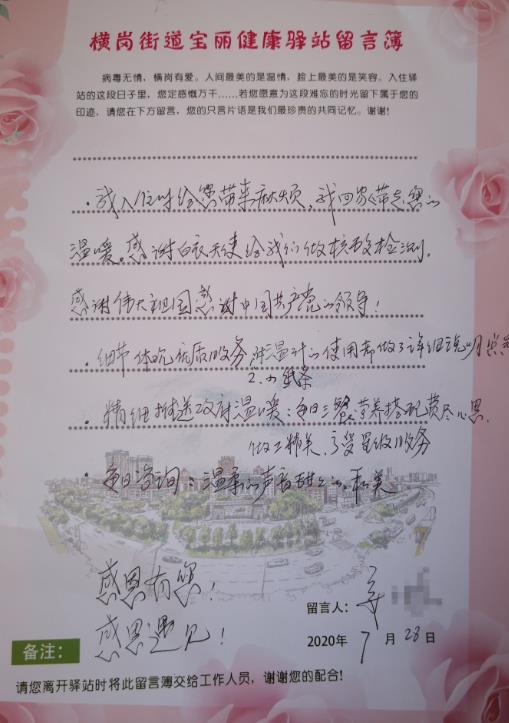 横岗街道宝丽健康驿站留言簿
病毒无情，横岗有爱。人间最美的是温情，脸上最美的是笑容。入住驿
站的这段日子里，您定感慨万千……若您愿意为这段难忘的时光留下属于您的
印迹，请您在下方留言，您的只言片语是我们最珍贵的共同记忆。谢谢！
·我入住时给您带来麻烦，我回家带走您的
温暖。感谢白衣天使给我们做核酸检测。
感谢伟大祖国感谢中国共产党的领导！
·细节体现优质服务 对温计的使用都做了详细说明
2.小纸条
·精细推送政府温暖：每日三餐营养搭配费尽心思。
做工精美 享受星级服务
·每日咨询：温柔的声音甜甜的 和美
感恩有您！
感恩遇见！
留言人：
2020年 7 月 28 日
备注：
请您离开驿站时将此留言簿交给工作人员，谢谢您的配合！